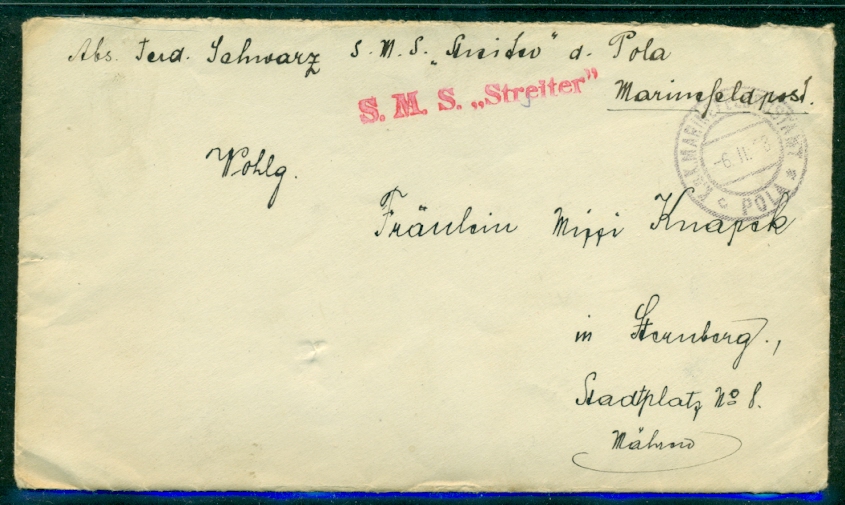 Abs. Ferd. Schwarz S.M.S. „Streiter" d. Pola
Marinefeldpost.
S. M. S. „Streiter”
K.u.K. MARINEFELDPOSTAMT
-6.II.18
* POLA c
Wohlg.
Fräulein Mizzi Knapek
in Sternberg.,
Stadtplatz No 8.
Mähren